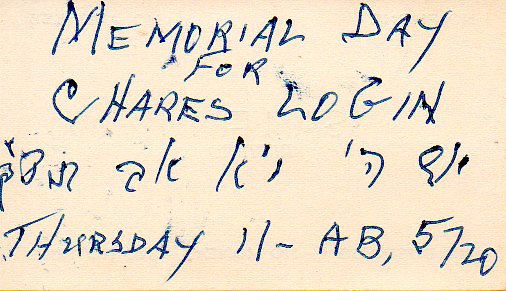 MEMORIAL DAY
FOR
CHARES LOGIN
יום ה' י"א אב תש"ך
THURSDAY 11- AB, 5720